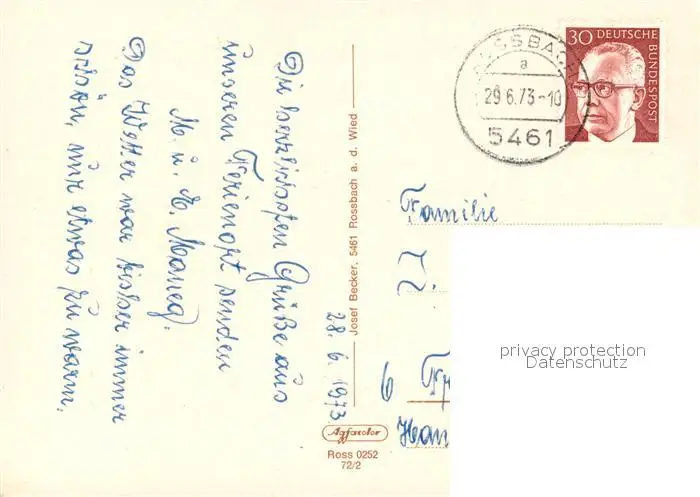 Die herzlichsten Grüße aus
unserem Ferienort senden
M. u. E. Maneg.
Das Wetter war bisher immer
schön, nur etwas zu warm.
28.6.1973
Josef Becker, 5461 Rossbach a. d. Wied
Agfacolor
Ross 0252
72/2
ROSSBACH
a
29.6.73-10
5461
30 DEUTSCHE
BUNDESPOST
Familie
6
privacy protection
Datenschutz